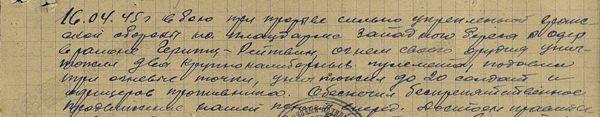 16.04.45 г в бою при прорыве сильно укрепленной вражес
кой обороны на плацдарме Западного берега р. Одер
в районе Гериц-Рейтвин, огнем своего орудия унич
тожил два крупнокалиберных пулемета, подавил
три огневые точки, уничтожил до 20 солдат и
офицеров противника. Обеспечил беспрепятственное
продвижение нашей пехоты вперед. Достоин правител